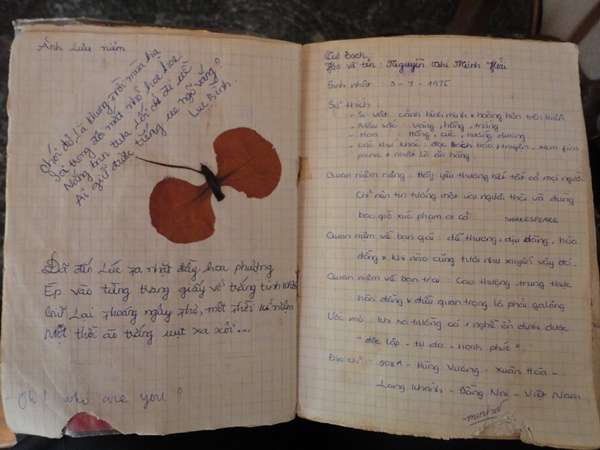 Ảnh lưu niệm
Chói đỏ là phung trời mùa hạ
Lục Bình.
Đã đến lúc ra nhặt đầy hoa phượng
Ép vào từng trang giấy vở trắng tinh khôi
Giữ lại khoảng ngây thơ, một thời kỉ niệm
Một thời áo trắng vụt xa xôi...
Oh! who are you?
Tự Bạch
Họ và tên: Nguyễn Thị Minh Hải
Sinh nhật: 3-7-1975
Sở thích:
- Sự vật: cảnh bình minh & hoàng hôn trên biển
- Màu sắc: vàng, hồng, trắng
- Hoa: hồng, cúc, hướng dương
- Các thứ khác: đọc sách báo, truyện, xem fim
& nhất là ăn hàng.
Quan niệm riêng: hãy yêu thương hết tất cả mọi người.
Chỉ nên tin tưởng một vài người thôi và đừng
bao giờ xúc phạm ai cả
SHAKESPEARE
Quan niệm về bạn gái: dễ thương, dịu dàng, hòa
đồng & khi nào cũng tươi như xuyến vậy đó.
Quan niệm về bạn trai: Cao thượng, trung thực
hòa đồng & điều quan trọng là phải galăng
Ước mơ: khi ra trường có 1 nghề ổn định được
"độc lập - tự do - hạnh phúc".
Địa chỉ: Hùng Vương - Xuân Hòa -
Long Khánh - Đồng Nai - Việt Nam